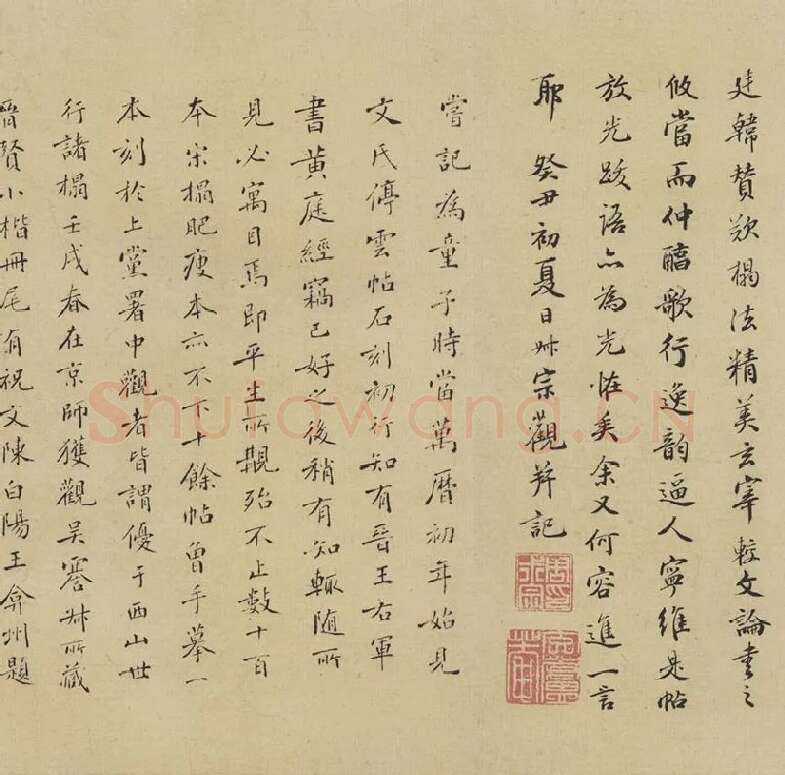 廷韓賛歎榻法精美玄宰較文論書之
攸當而仲醕歌行逸韵逼人寧維是帖
放光跋語亦為光恠矣余又何容進一言
耶 癸丑初夏日 宗觀并記
嘗記為童子時當萬曆初年始見
文氏停雲帖石刻初行知有晉王右軍
書黃庭經竊已好之後稍有知輒随所
見必寓目焉即平生所覩殆不止數十百
本宋榻肥瘦本亦不下十餘帖曾手摹一
本刻於上黨署中觀者皆謂優于西山世
行諸榻壬戌春在京師獲觀吴 所藏
晉賢小楷冊尾有祝文陳白陽王弇州題
Shufawang.CN